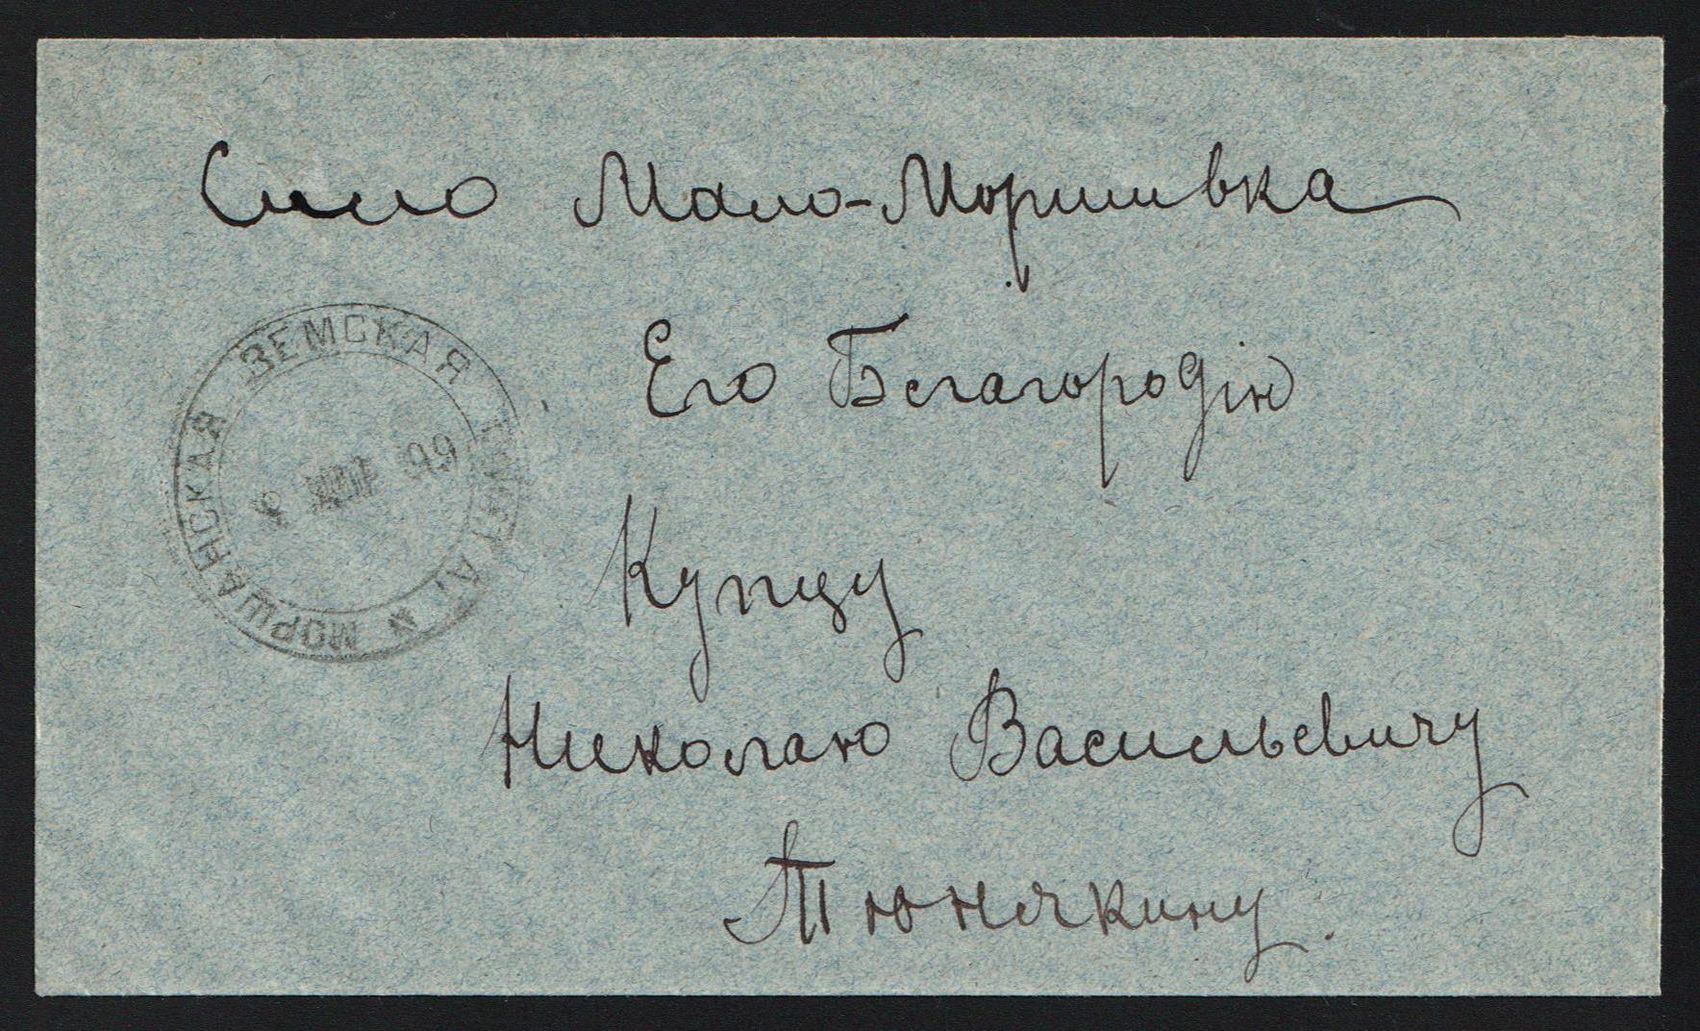 Село Мало-Моршевка
Его Благородію
Купцу
Николаю Васильевичу
Тюнячкину.
МОРШАНСКАЯ ЗЕМСКАЯ ПОЧТА.
99